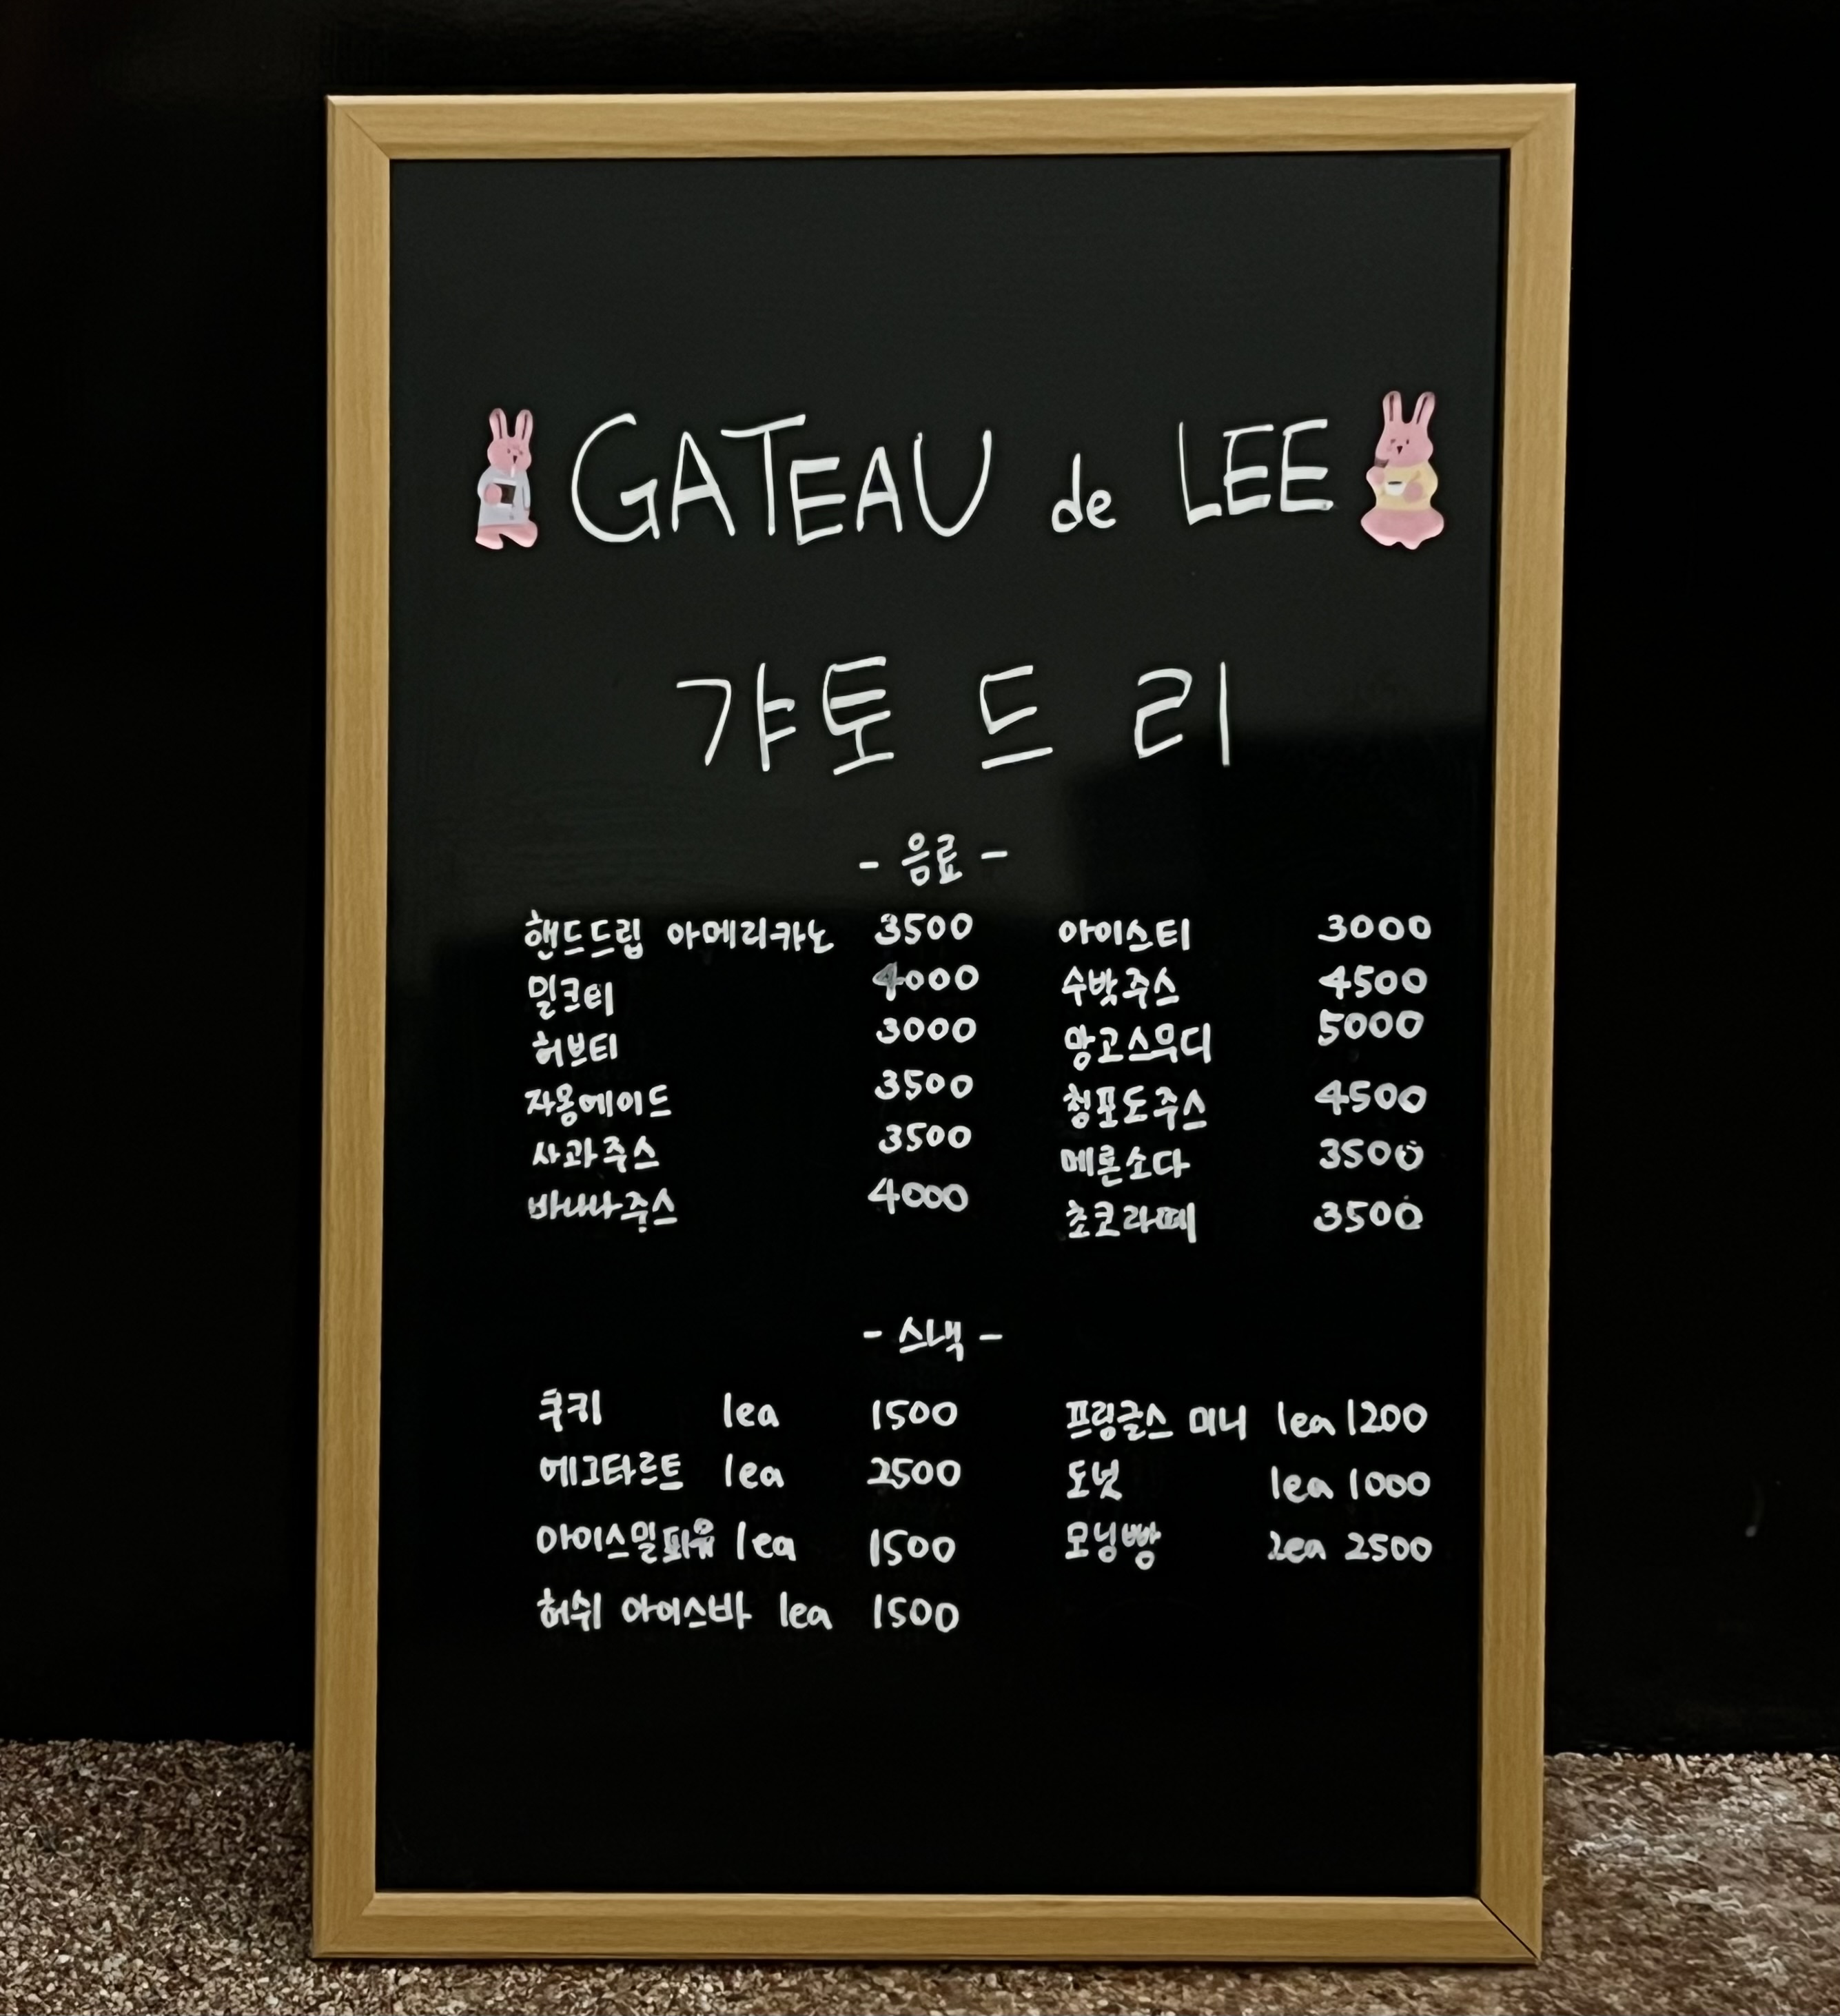 GATEAU de LEE
갸토 드 리
- 음료 -
핸드드립 아메리카노 3500
밀크티 4000
허브티 3000
자몽에이드 3500
사과주스 3500
바나나주스 4000
아이스티 3000
수박주스 4500
망고스무디 5000
청포도주스 4500
메론소다 3500
초코라떼 3500
- 스낵 -
쿠키 1ea 1500
에그타르트 1ea 2500
아이스밀푀유 1ea 1500
허쉬 아이스바 1ea 1500
프링글스 미니 1ea 1200
도넛 1ea 1000
모닝빵 2ea 2500